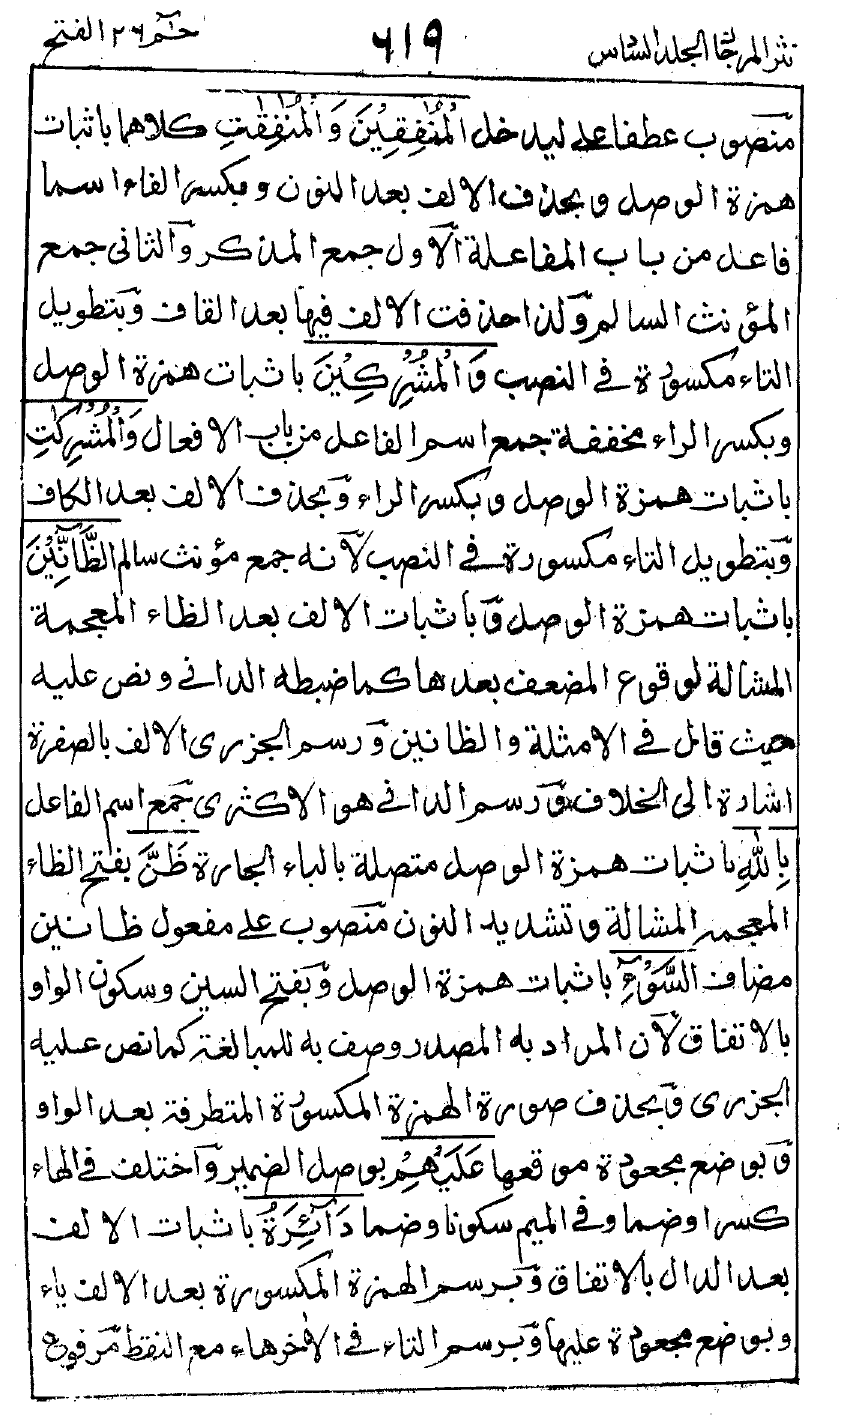 نثر المرجان الجلد السادس ٦١٩ حٰم ٢٦ الفتح
منصوب عطفا على ليدخل الْمُنٰفِقِيْنَ وَالْمُنٰفِقٰتِ كلاهما باثبات
همزة الوصل وبحذف الالف بعد النون وبكسر الفاء اسما
فاعل من باب المفاعلة الاول جمع المذكر والثانى جمع
المؤنث السالم ولذا حذفت الالف فيها بعد القاف وبتطويل
التاء مكسورة فى النصب وَالْمُشْرِكِيْنَ باثبات همزة الوصل
وبكسر الراء مخففة جمع اسم الفاعل من باب الافعال وَالْمُشْرِكٰتِ
باثبات همزة الوصل وبكسر الراء وبحذف الالف بعد الكاف
وبتطويل التاء مكسورة فى النصب لانه جمع مؤنث سالم الظَّآنِّيْنَ
باثبات همزة الوصل وباثبات الالف بعد الظاء المعجمة
المشالة لوقوع المضعف بعدها كما ضبطه الدانى ونص عليه
حيث قال فى الامثلة والظانين ورسم الجزرى الالف بالصفرة
اشارة الى الخلاف ورسم الدانى هو الاكثرى جمع اسم الفاعل
بِاللّٰهِ باثبات همزة الوصل متصلة بالباء الجارة ظَنَّ بفتح الظاء
المعجمه المشالة وتشديد النون منصوب على مفعول ظانين
مضاف السَّوْءِ باثبات همزة الوصل وبفتح السين وسكون الواو
بالاتفاق لان المراد به المصدر وصف به للمبالغة كما نص عليه
الجزرى وبحذف صورة الهمزة المكسورة المتطرفة بعد الواو
وبوضع مجعودة موقعها عَلَيْهِمْ بوصل الضمير واختلف فى الهاء
كسرا وضما وفى الميم سكونا وضما دَآئِرَةُ باثبات الالف
بعد الدال بالاتفاق وبرسم الهمزة المكسورة بعد الالف ياء
وبوضع مجعودة عليها وبرسم التاء فى الاخر هاء مع النقط مرفوع